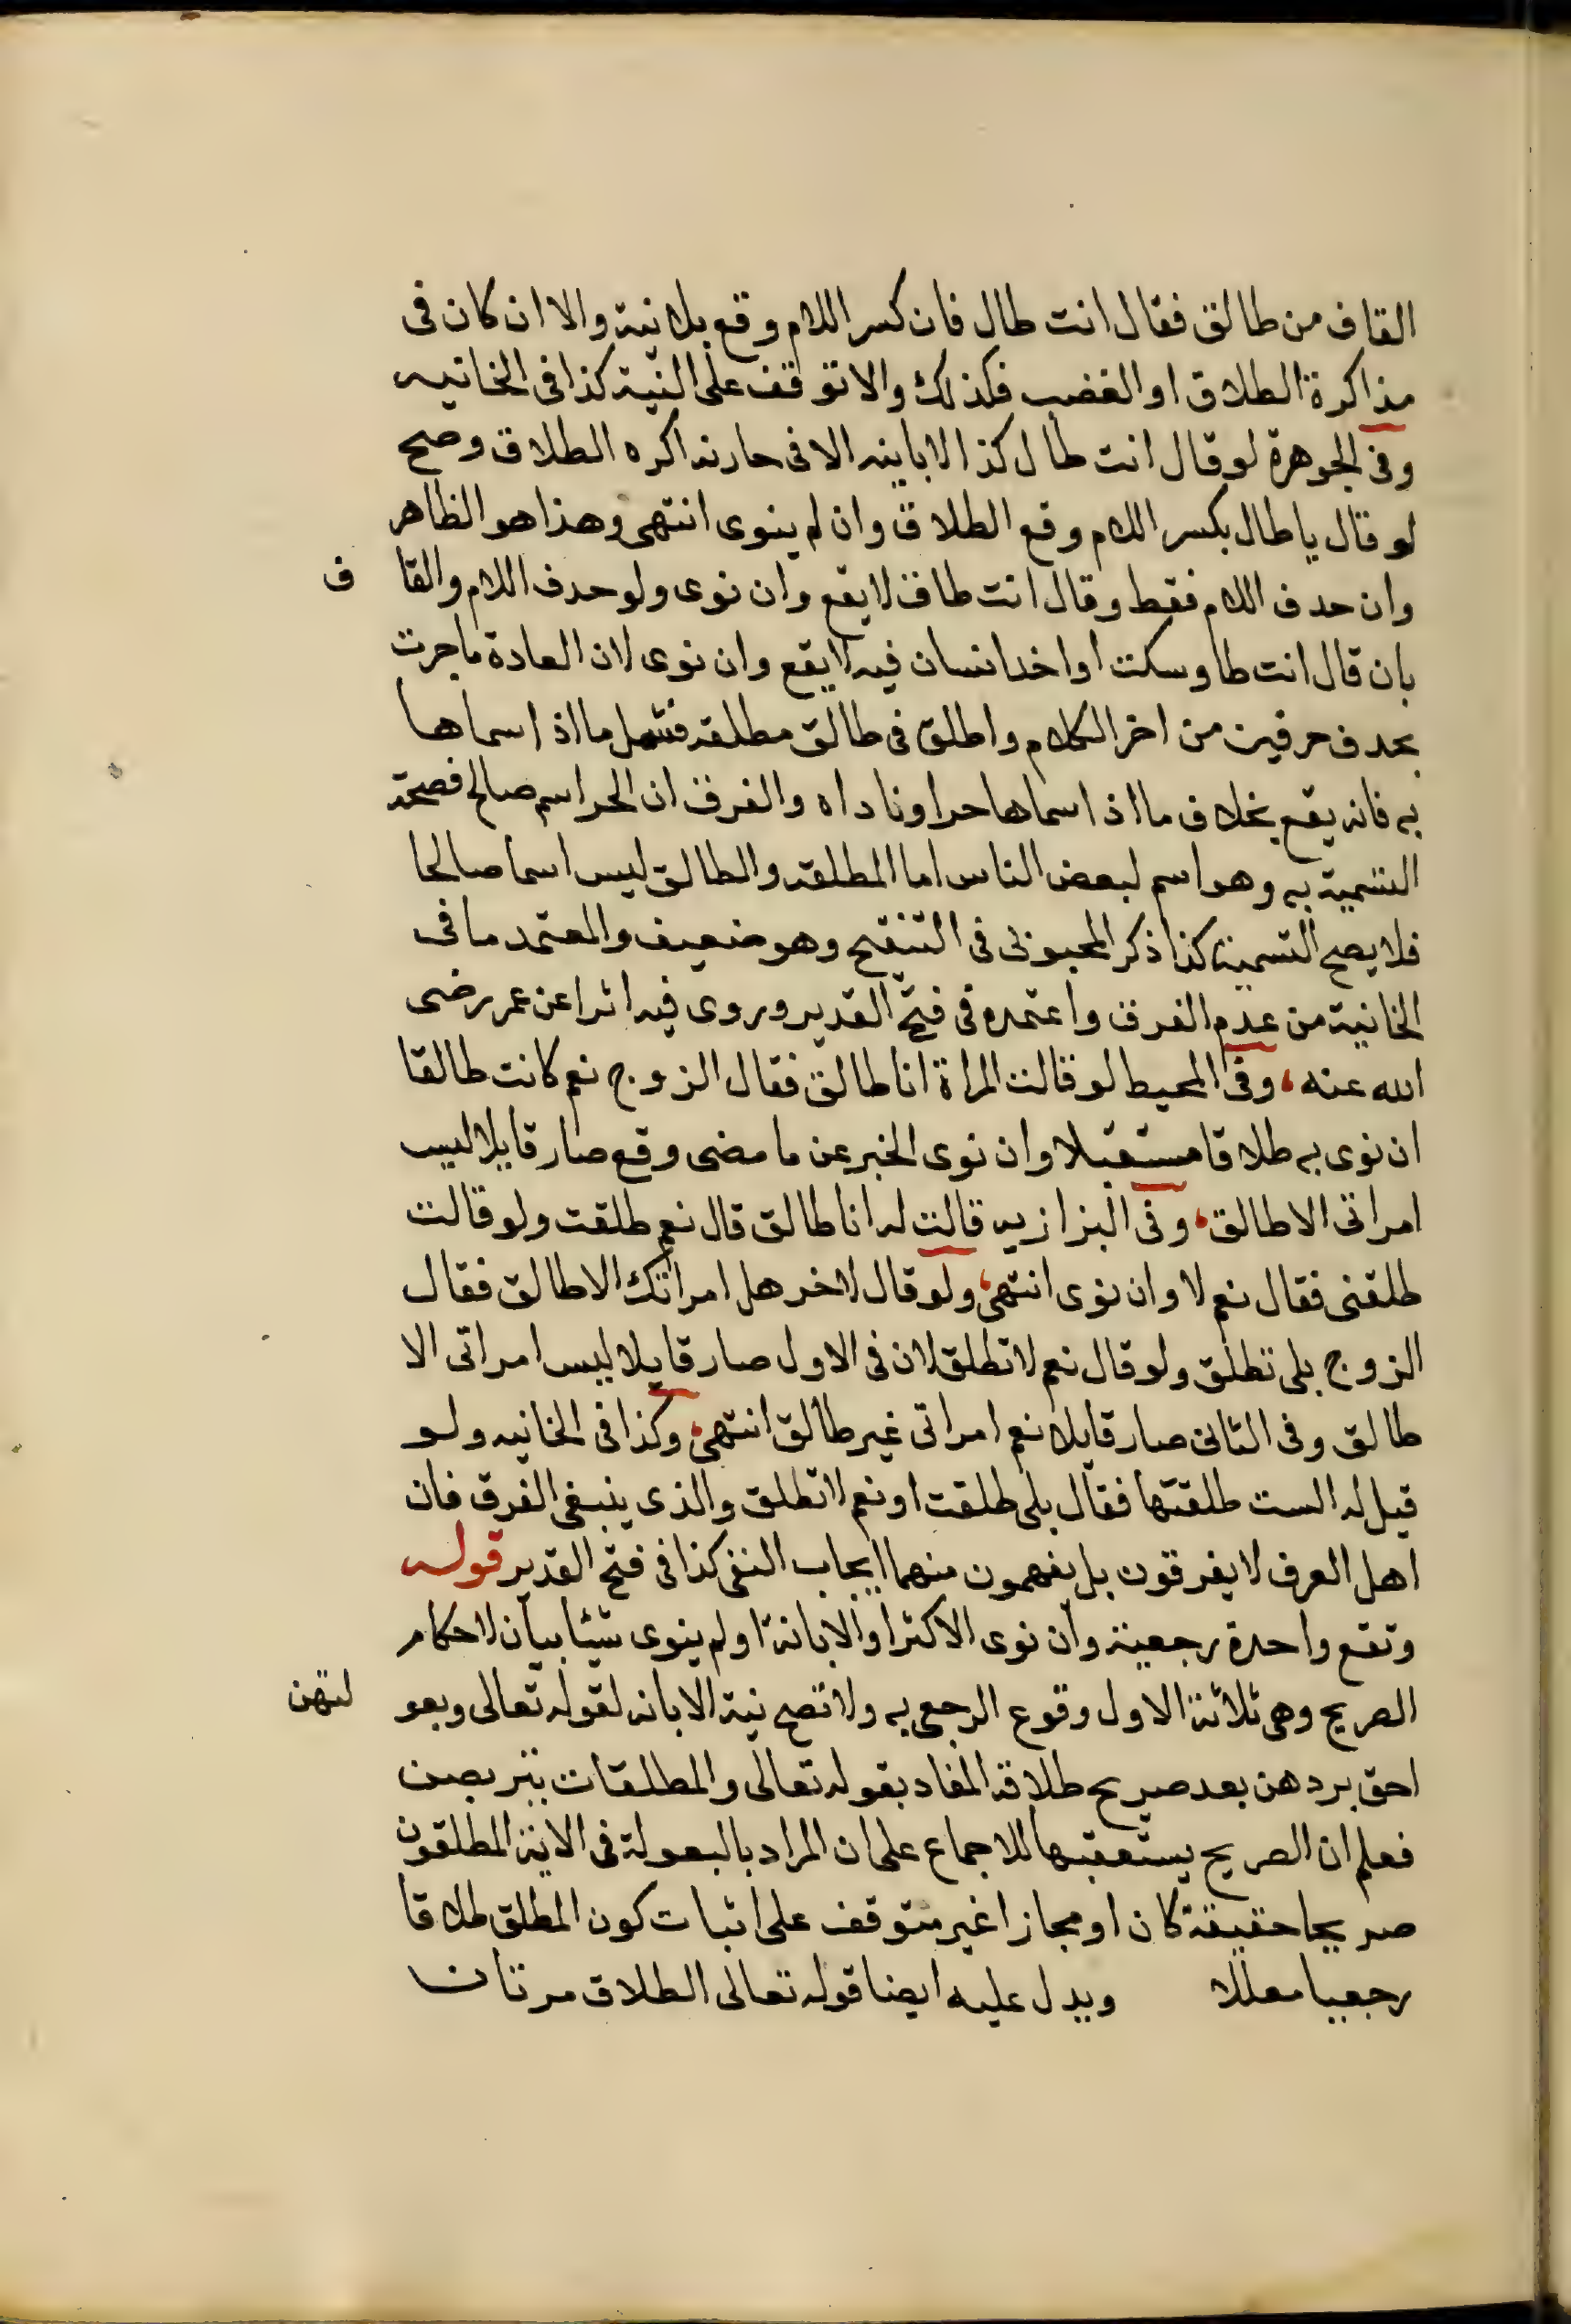 القاف من طالق فقال انت طال فان كسر اللام وقع بلا نية والا ان كان فى
مذاكرة الطلاق او الغضب فكذلك والا توقف على النية كذا فى الخانيه
وفى الجوهرة لو قال انت طال كذا الا فى اكره الطلاق وصح
لو قال يا طال بكسر اللام وقع الطلاق وان لم ينوى انتهى وهذا هو الظاهر
وان حدف اللام فقط وقال انت طاق لا يقع وان نوى ولو حدف اللام والقاف
بان قال انت طا وسكت او اخد انسان فيه لا يقع وان نوى لان العادة ما جرت
بحدف حرفين من اخر الكلام واطلق فى طالق مطلقه فشمل ما اذا سماها
به فانه يقع بخلاف ما اذا سماها حرا وناداه والفرق ان الحر اسم صالح فصحة
التسمية به وهو اسم لبعض الناس اما المطلقه والطالق ليس اسما صالحا
فلا يصح التسمية كذا ذكر المحبوبى فى التنقيح وهو ضعيف والمعتمد ما فى
الخانية من عدم الفرق واعتمده فى فتح القدير وروى فيه اثرا عن عمر رضى
الله عنه، وفى المحيط لو قالت المراة انا طالق فقال الزوج نعم كانت طالقا
ان نوى به طلاقا مستقبلا وان نوى الخبر عن ما مضى وقع صار قايلا ليس
امراتى الا طالق، وفى البزازيه قالت له انا طالق قال نعم طلقت ولو قالت
طلقنى فقال نعم لا وان نوى انتهى، ولو قال لاخر هل امراتك الا طالق فقال
الزوج بلى تطلق ولو قال نعم لا تطلق لان فى الاول صار قايلا ليس امراتى الا
طالق وفى الثانى صار قايلا نعم امراتى غير طالق انتهى، وكذا فى الخانيه ولو
قيل له الست طلقتها فقال بلى طلقت او نعم لا تطلق والذى ينبغى الفرق فان
اهل العرف لا يفرقون بل يفهمون منهما ايجاب النفى كذا فى فتح القدير قوله
وتقع واحدة رجعية وان نوى الاكثر او الابانة او لم ينوى شيئا بيان لاحكام
الصريح وهى ثلاثة الاول وقوع الرجعى به ولا تصح نية الابانه لقوله تعالى وبعولتهن
احق بردهن بعد صريح طلاقه المفاد بقوله تعالى والمطلقات يتربصن
فعلم ان الصريح يستعقبها للاجماع على ان المراد بالبعولة فى الاية المطلقون
صريحا حقيقة كان او مجازا غير متوقف على اثبات كون المطلق طلاقا
رجعيا معللا ويدل عليه ايضا قوله تعالى الطلاق مرتان